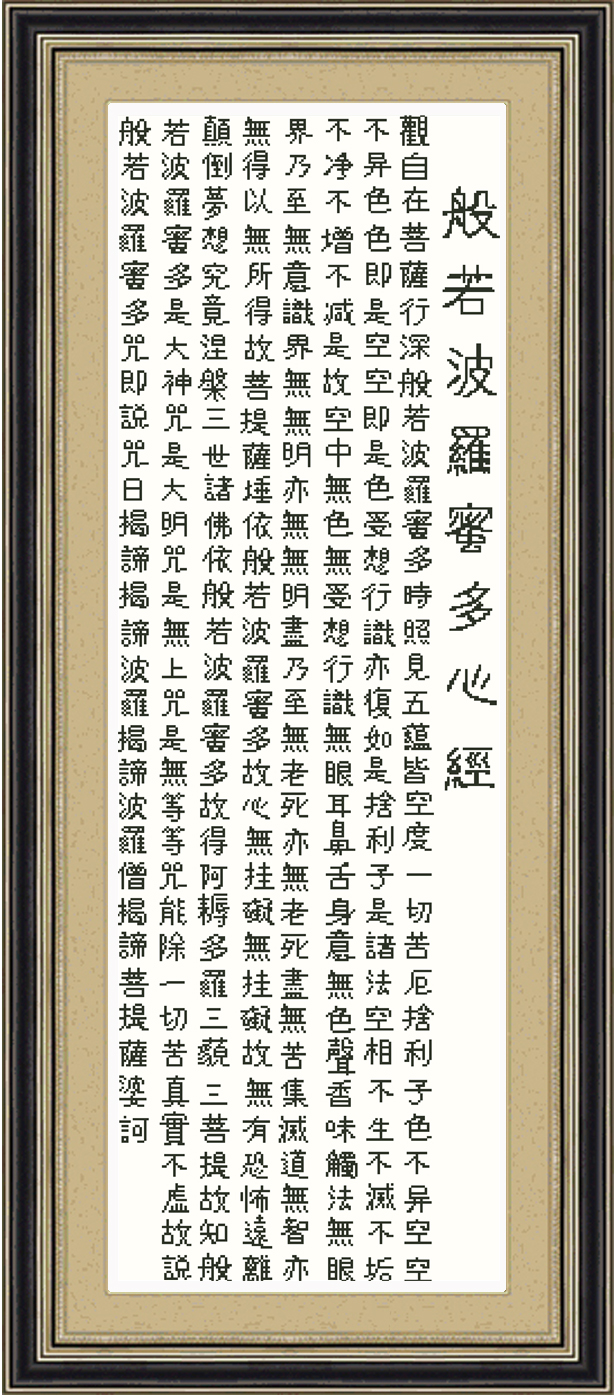 般若波羅蜜多心經
觀自在菩薩行深般若波羅蜜多時照見五蘊皆空度一切苦厄捨利子色不异空空
不异色色即是空空即是色受想行識亦復如是捨利子是諸法空相不生不滅不垢
不净不增不减是故空中無色無受想行識無眼耳鼻舌身意無色聲香味觸法無眼
界乃至無意識界無無明亦無無明盡乃至無老死亦無老死盡無苦集滅道無智亦
無得以無所得故菩提薩埵依般若波羅蜜多故心無挂礙無挂礙故無有恐怖遠離
顛倒夢想究竟涅槃三世諸佛依般若波羅蜜多故得阿耨多羅三藐三菩提故知般
若波羅蜜多是大神咒是大明咒是無上咒是無等等咒能除一切苦真實不虛故説
般若波羅蜜多咒即説咒日揭諦揭諦波羅揭諦波羅僧揭諦菩提薩婆訶